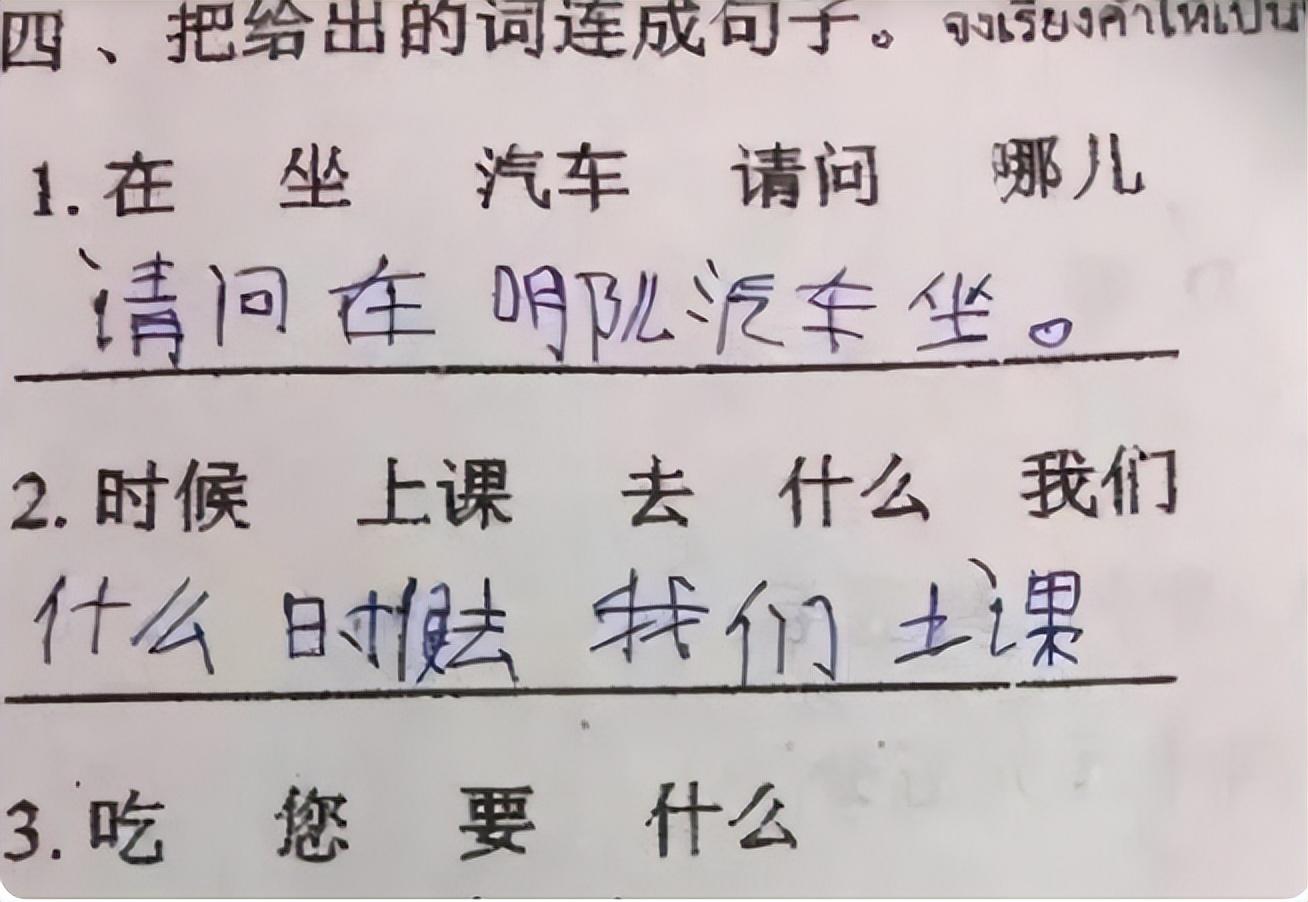 四、把给出的词连成句子。 จงเรียงคำให้เป็น
1. 在 坐 汽车 请问 哪儿
请问 在 哪儿 汽车 坐。
2. 时候 上课 去 什么 我们
什么 时候去 我们 上课
3. 吃 您 要 什么